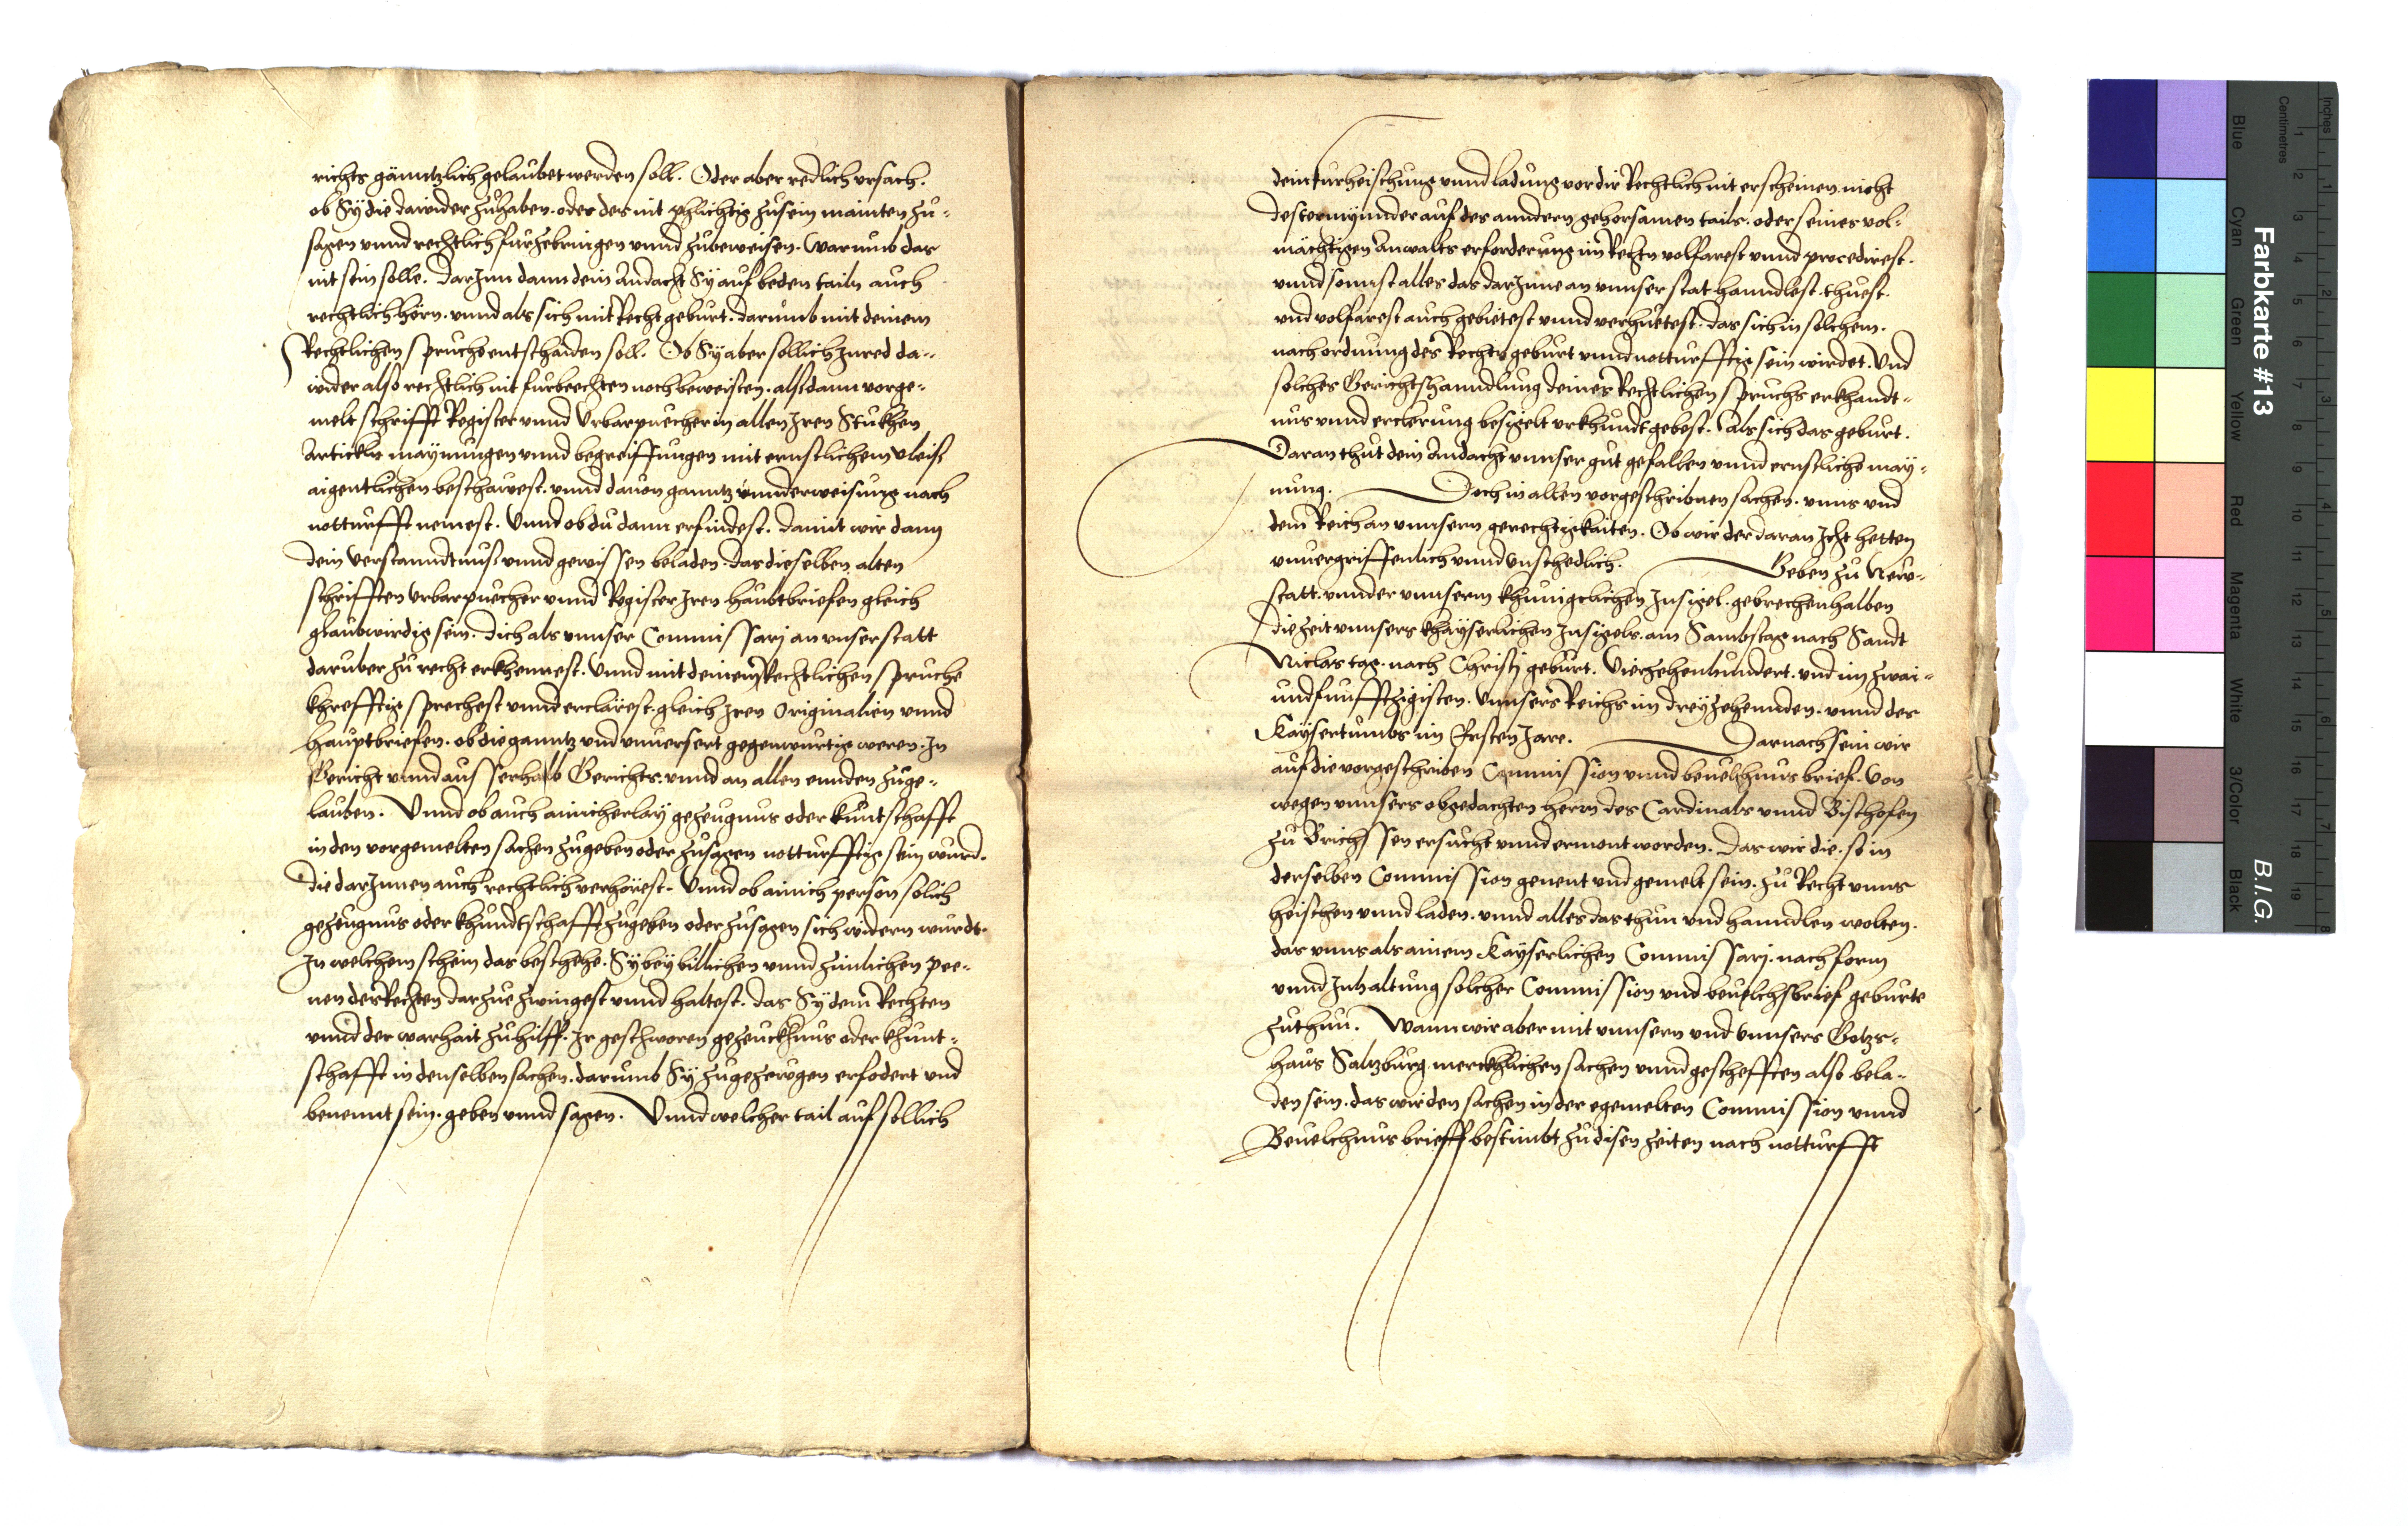 richts gänntzlich gelaubet werden soll. Oder aber redlich vrsach.
ob Sÿ die dawider zuhaben. oder des nit phlichtig zusein mainten zu-
sagen vnnd rechtlich furzebringen vnnd zubeweisen. warumb das
nit sein solle. darJnn dann dein Andacht Sÿ auf beden tailn auch
rechtlich hörn. vnnd als sich mit Recht geburt. darumb mit deinem
Rechtlichen spruche entschaiden soll. Ob Sÿ aber sollich Inred da-
wider also rechtlich nit furbrechten noch beweisten. alssdann vorge-
melt schrifft Register vnnd Vrbarpuecher in allen Jren Stukhen
Artickln maÿnungen vnnd begreiffungen mit ernstlichem vleiß
aigentlichen beschawest. vnnd dauon ganntz vnnderweisung nach
notturfft nemest. Vnnd ob du dann erfindest. damit wir dann
dein Verstanndtnuß vnnd gewissen beladen. das dieselben alten
schrifften Vrbarpuecher vnnd Register Jren haubtbriefen gleich
glaubwirdig sein. dich als vnnser Commissarj an vnser statt
daruber zu recht erkhennest. Vnnd mit deinem Rechtlichen spruche
khrefftig sprechest vnnd erclärest. gleich Jren Originalien vnnd
hauptbriefen. ob die ganntz vnd vnuersert gegenwurtig weren. Jn
Gericht vnnd ausserhalb Gerichts. vnnd an allen ennden zuge-
lauben. Vnnd ob auch ainicherlaÿ gezeugnus oder kuntschafft
in den vorgemelten sachen zugeben oder zusagen notturfftig sein wurd.
die darJnnen auch rechtlich verhörest. Vnnd ob ainich person solich
gezeugnus oder khundtschafft zugeben oder zusagen sich widern wurdt.
Jn welchem schein das beschehe. Sÿ beÿ billichen vnnd zimlichen pee-
nen des Rechten darzue zwingest vnnd haltest. das Sÿ dem Rechten
vnnd der warhait zuhilff. Jr geschworen gezeuckhnus oder khunt-
schafft in denselben sachen. darumb Sÿ zugezewgen erfodert vnd
benennt sein. geben vnnd sagen. Vnnd welcher tail auf sollich
dein furheischung vnnd ladung vor dir Rechtlich nit erscheinen. nicht
destermÿnnder auf des anndern gehorsamen tails. oder seines vol-
mächtigen Anwalts erforderung im Rechtn volfarest vnnd procedirest.
vnnd sonnst alles das darJnne an vnnser stat hanndlest. thuest.
vnd volfarest auch gebietest vnnd verhuetest. das sich in solchem.
nach ordnung des Rechts geburt vnnd notturfftig sein wirdet. Vnd
solches Gerichtshanndlung deines Rechtlichen spruchs erkhandt-
nus vnnd erclerung besigelt vrkhundt gebest. Als sich das geburt.
Daran thut dein Andacht vnnser gut gefallen vnnd ernstliche maÿ-
nung. Doch in allen vorgeschribnen sachen. vnns vnd
dem Reich an vnnsern gerechtigkaiten. Ob wir der daran Jcht hetten
vnuergriffenlich vnnd vnschedlich. Geben zu New-
statt. vnnder vnnserm khunigclichen Jnsigel. gebrechenhalben
die zeit vnnsers khaÿserlichen Jnsigels. am Sambstag nach Sandt
Niclas tag. nach Christj geburt. Vierzehenhundert. vnd im zwai-
undfunfftzigisten. Vnnsers Reichs im dreÿzehennden. vnnd des
Kaÿsertumbs im Ersten Jare. Darnach sein wir
auf die vorgeschriben Commission vnnd beuelhnus brief. von
wegen vnnsers obgedachten herrn des Cardinals vnnd Bischofen
zu Brichssen ersucht vnnd ermont worden. Das wir die. so in
derselben Commission genent vnd gemelt sein. zu Recht vnns
heischen vnnd laden. vnnd alles das thun vnd hanndlen wolten.
das vnns als ainem Kaÿserlichen Commissarj. nach form
vnnd Jnhaltung solcher Commission vnd beuelchsbrief geburte
zuthun. Wann wir aber mit vnnsern vnd vnnsers Gotzs-
haus Saltzburg merckhlichen sachen vnnd geschefften also bela-
den sein. das wir den sachen in der egemelten Commission vnnd
Beuelchnus brieff bestimbt zu disen zeiten nach notturfft
Farbkarte #13
B.I.G.
Inches
Centimetres
Blue
Cyan
Green
Yellow
Red
Magenta
White
3/Color
Black